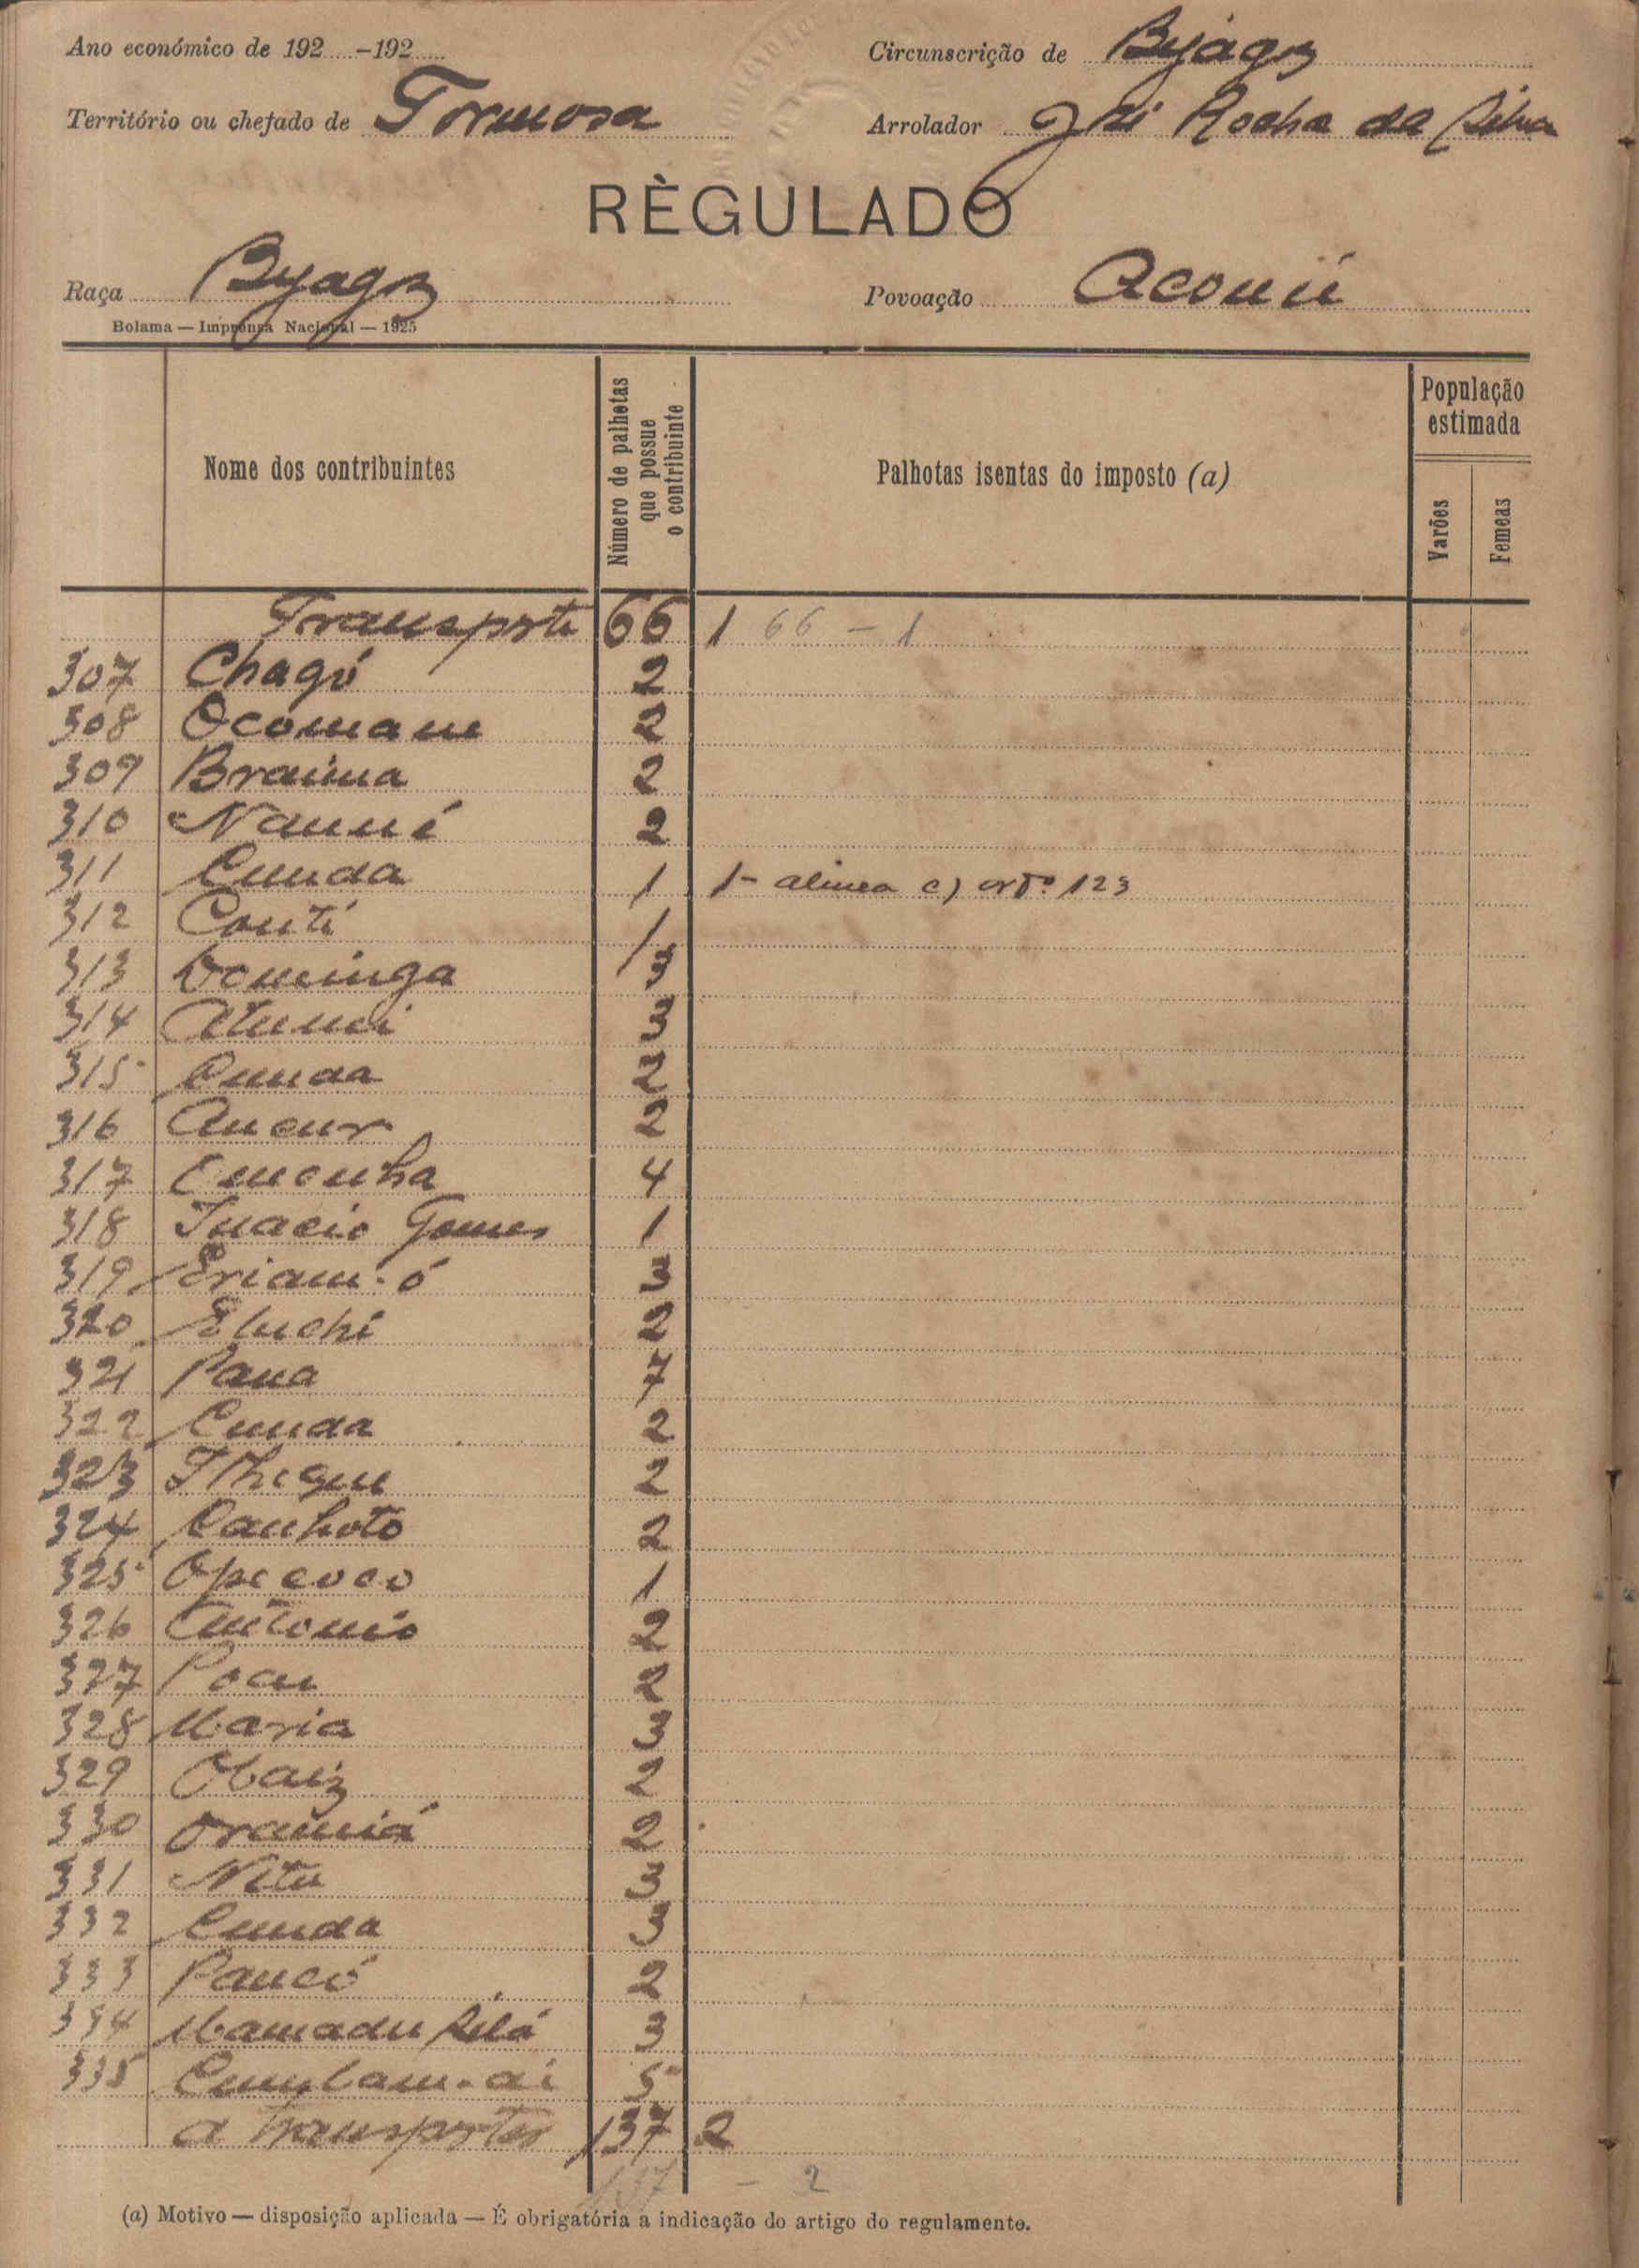 Ano económico de 192.....-192..... Circunscrição de Byagoz
Território ou chefado de Formosa Arrolador José Rocha da Silva
RÈGULADO
Raça Byagoz Povoação Aconií
Bolama — Imprensa Nacional — 1925
Nome dos contribuintes Número de palhotas que possue o contribuinte Palhotas isentas do imposto (a) População estimada
Varões Femeas
Transporte 66 1 66 - 1
307 Chagó 2
308 Ocomane 2
309 Braima 2
310 Nanní 2
311 Cunda 1 1 - alinea c) artº 123
312 Contí 1
313 Dominga 3
314 3
315 Cunda 2
316 Ancur 2
317 Emenha 4
318 Inacio Gomes 1
319 Eriam-ó 3
320 Eluchi 2
321 Pana 7
322 Cunda 2
323 2
324 Canhoto 2
325 Opecoco 1
326 Antonio 2
327 Pocu 2
328 Maria 3
329 Obaiz 2
330 Oramiá 2
331 Nitu 3
332 Cunda 3
333 Pancó 2
334 Mamadu Silá 3
335 5
a transportar 137 2
137 - 2
(a) Motivo — disposição aplicada — É obrigatória a indicação do artigo do regulamento.